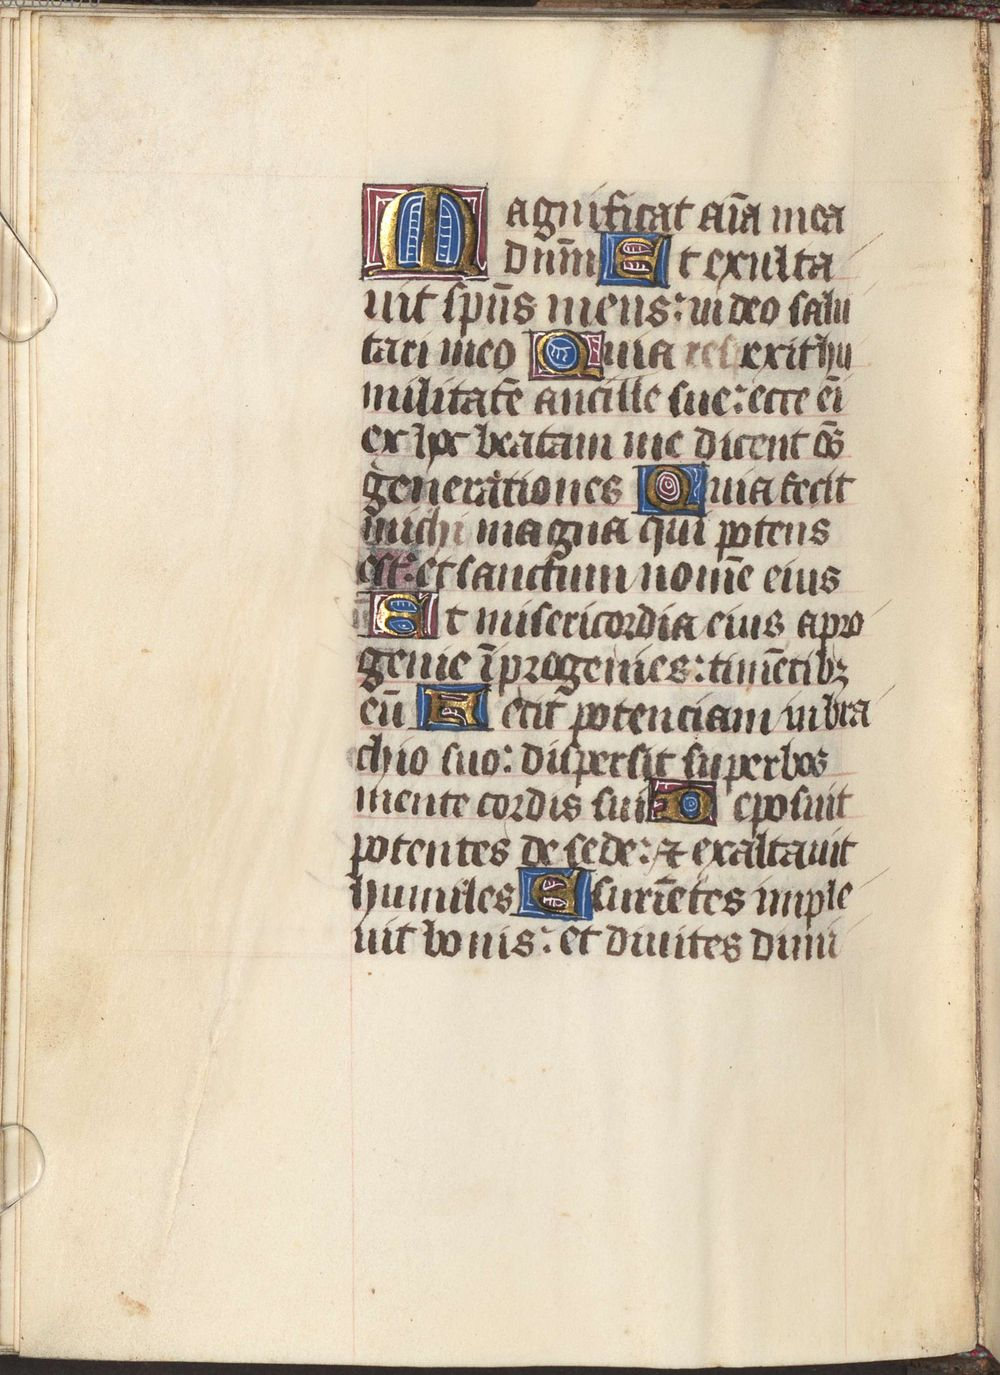 Magnificat aīa mea
dnūm Et exulta
uit spūs meus: in deo salu
tari meo Quia respexit hu
militatē ancille sue: ecce eī
ex hoc beatam me dicent oēs
generationes Quia fecit
michi magna qui potens
est: et sanctum nomē eius
Et misericordia eius a pro
genie ī progenies: timētibꝫ
eū Fecit potenciam in bra
chio suo: dispersit superbos
mente cordis sui Deposuit
potentes de sede: ⁊ exaltauit
humiles Esuriētes imple
uit bonis: et diuites dimi